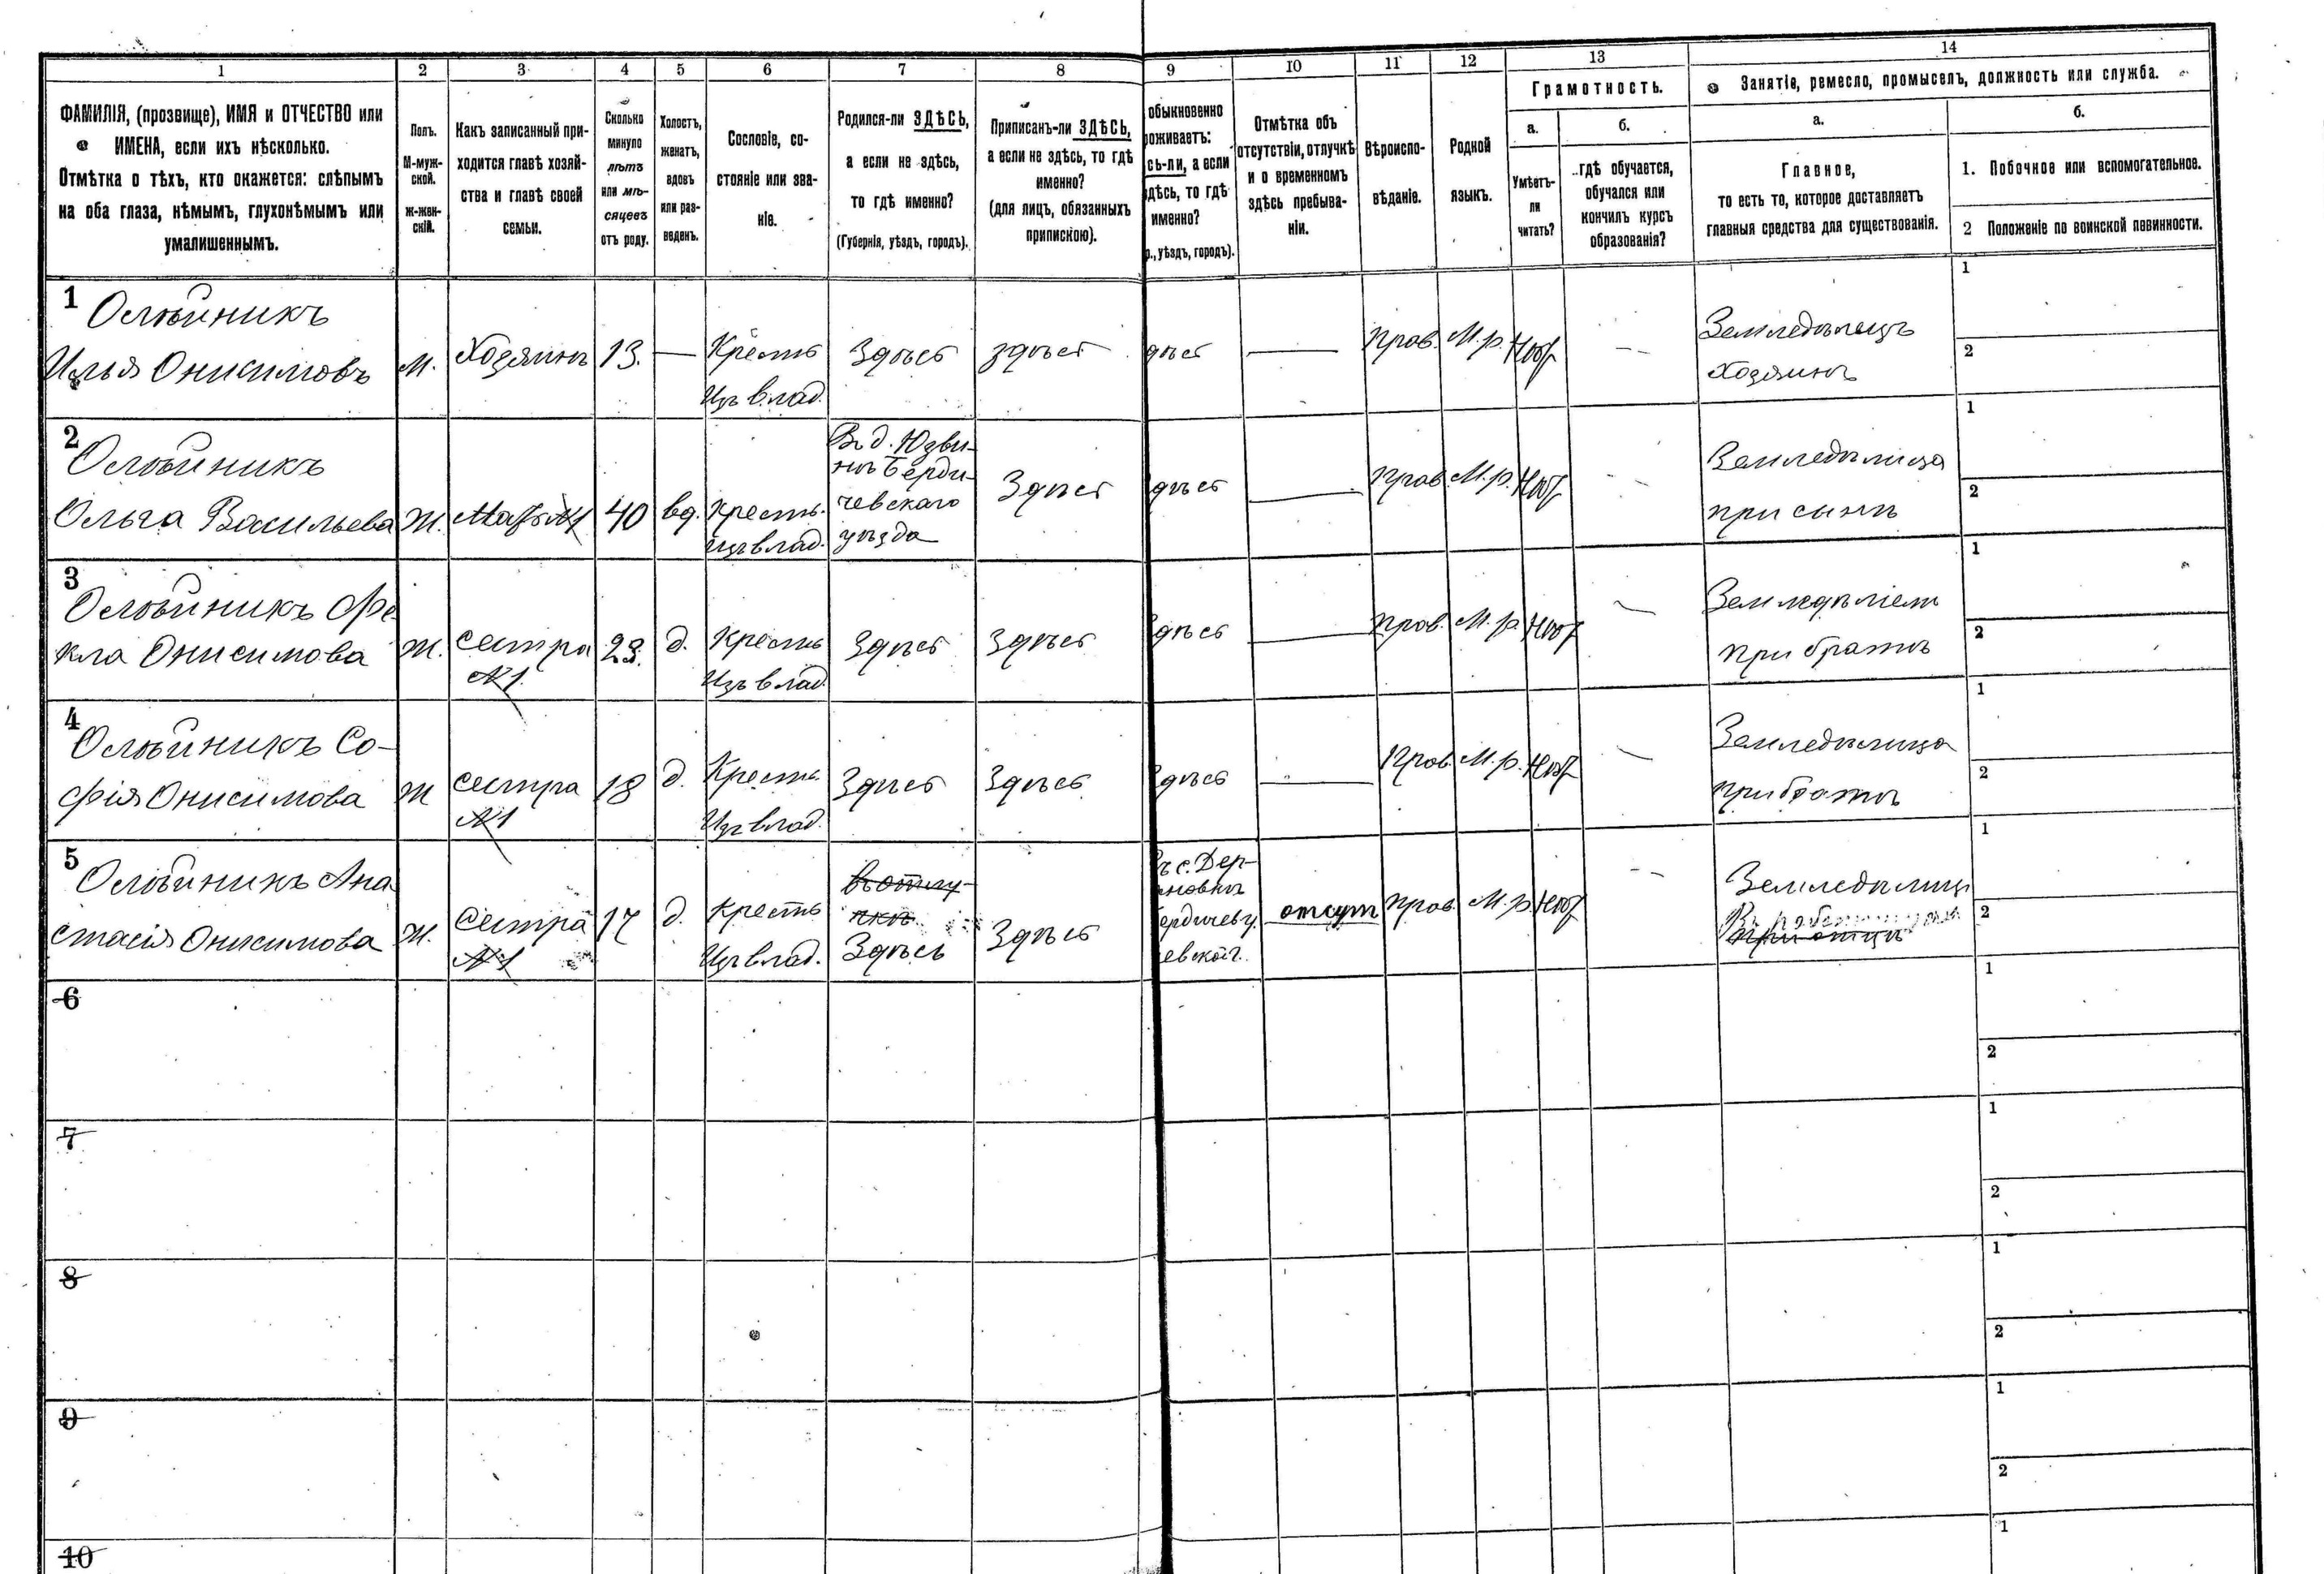 1 2 3 4 5 6 7 8 9 10 11 12 13 14
ФАМИЛІЯ, (прозвище), ИМЯ и ОТЧЕСТВО или
ИМЕНА, если ихъ нѣсколько.
Отмѣтка о тѣхъ, кто окажется: слѣпымъ
на оба глаза, нѣмымъ, глухонѣмымъ или
умалишеннымъ.
Полъ.
М-муж-
ской.
ж-жен-
скій.
Какъ записанный при-
ходится главѣ хозяй-
ства и главѣ своей
семьи.
Сколько
минуло
лѣтъ
или мѣ-
сяцевъ
отъ роду.
Холостъ,
женатъ,
вдовъ
или раз-
веденъ.
Сословіе, со-
стояніе или зва-
ніе.
Родился-ли ЗДѢСЬ,
а если не здѣсь,
то гдѣ именно?
(Губернія, уѣздъ, городъ).
Приписанъ-ли ЗДѢСЬ,
а если не здѣсь, то гдѣ
именно?
(для лицъ, обязанныхъ
припискою).
обыкновенно
роживаетъ:
сь-ли, а если
дѣсь, то гдѣ
именно?
р., уѣздъ, городъ).
Отмѣтка объ
отсутствіи, отлучкѣ
и о временномъ
здѣсь пребыва-
ніи.
Вѣроиспо-
вѣданіе.
Родной
языкъ.
Грамотность.
а.
Умѣетъ-
ли
читать?
б.
гдѣ обучается,
обучался или
кончилъ курсъ
образованія?
Занятіе, ремесло, промыселъ, должность или служба.
а.
Главное,
то есть то, которое доставляетъ
главныя средства для существованія.
б.
1. Побочное или вспомогательное.
2 Положеніе по воинской повинности.
1
Олѣйникъ
Илья Онисимовъ
М.
Хозяинъ
13.
—
Кресть
Изъ влад.
Здѣсь
здѣсь
дѣсь
—
прав.
М.р.
—
Земледѣлецъ
Хозяинъ
1
2
2
Олѣйникъ
Ольга Васильева
Ж.
Мать N1
40
вд.
Кресть.
Изъ влад.
Въ д. Юзви-
нѣ Берди-
чевскаго
уѣзда
Здѣсь
дѣсь
—
Прав.
М.р.
Земледѣлица
при сынѣ
1
2
3
Олѣйникъ Фе-
кла Онисимова
Ж.
сестра
N1
23.
д.
Кресть
Изъ влад
Здѣсь
Здѣсь
дѣсь
—
прав.
М.р.
—
при братѣ
1
2
4
Олѣйникъ Со-
фія Онисимова
Ж
сестра
N1
18
д.
Кресть
Изъ влад.
Здѣсь
Здѣсь
дѣсь
—
Прав.
М.р.
—
Земледѣлица
при братѣ
1
2
5
Олѣйникъ Ана
стасія Онисимова
Ж.
Сестра
N1
17
д.
Кресть
Изъ влад.
въ отлу-
чкѣ
Здѣсь
Здѣсь
ъ с. Дер-
ановкѣ
ердичеву.
евской г.
отсут
прав.
М.р.
—
Земледѣлиц
при отцѣ
1
2
6
1
2
7
1
2
8
1
2
9
1
2
10
1